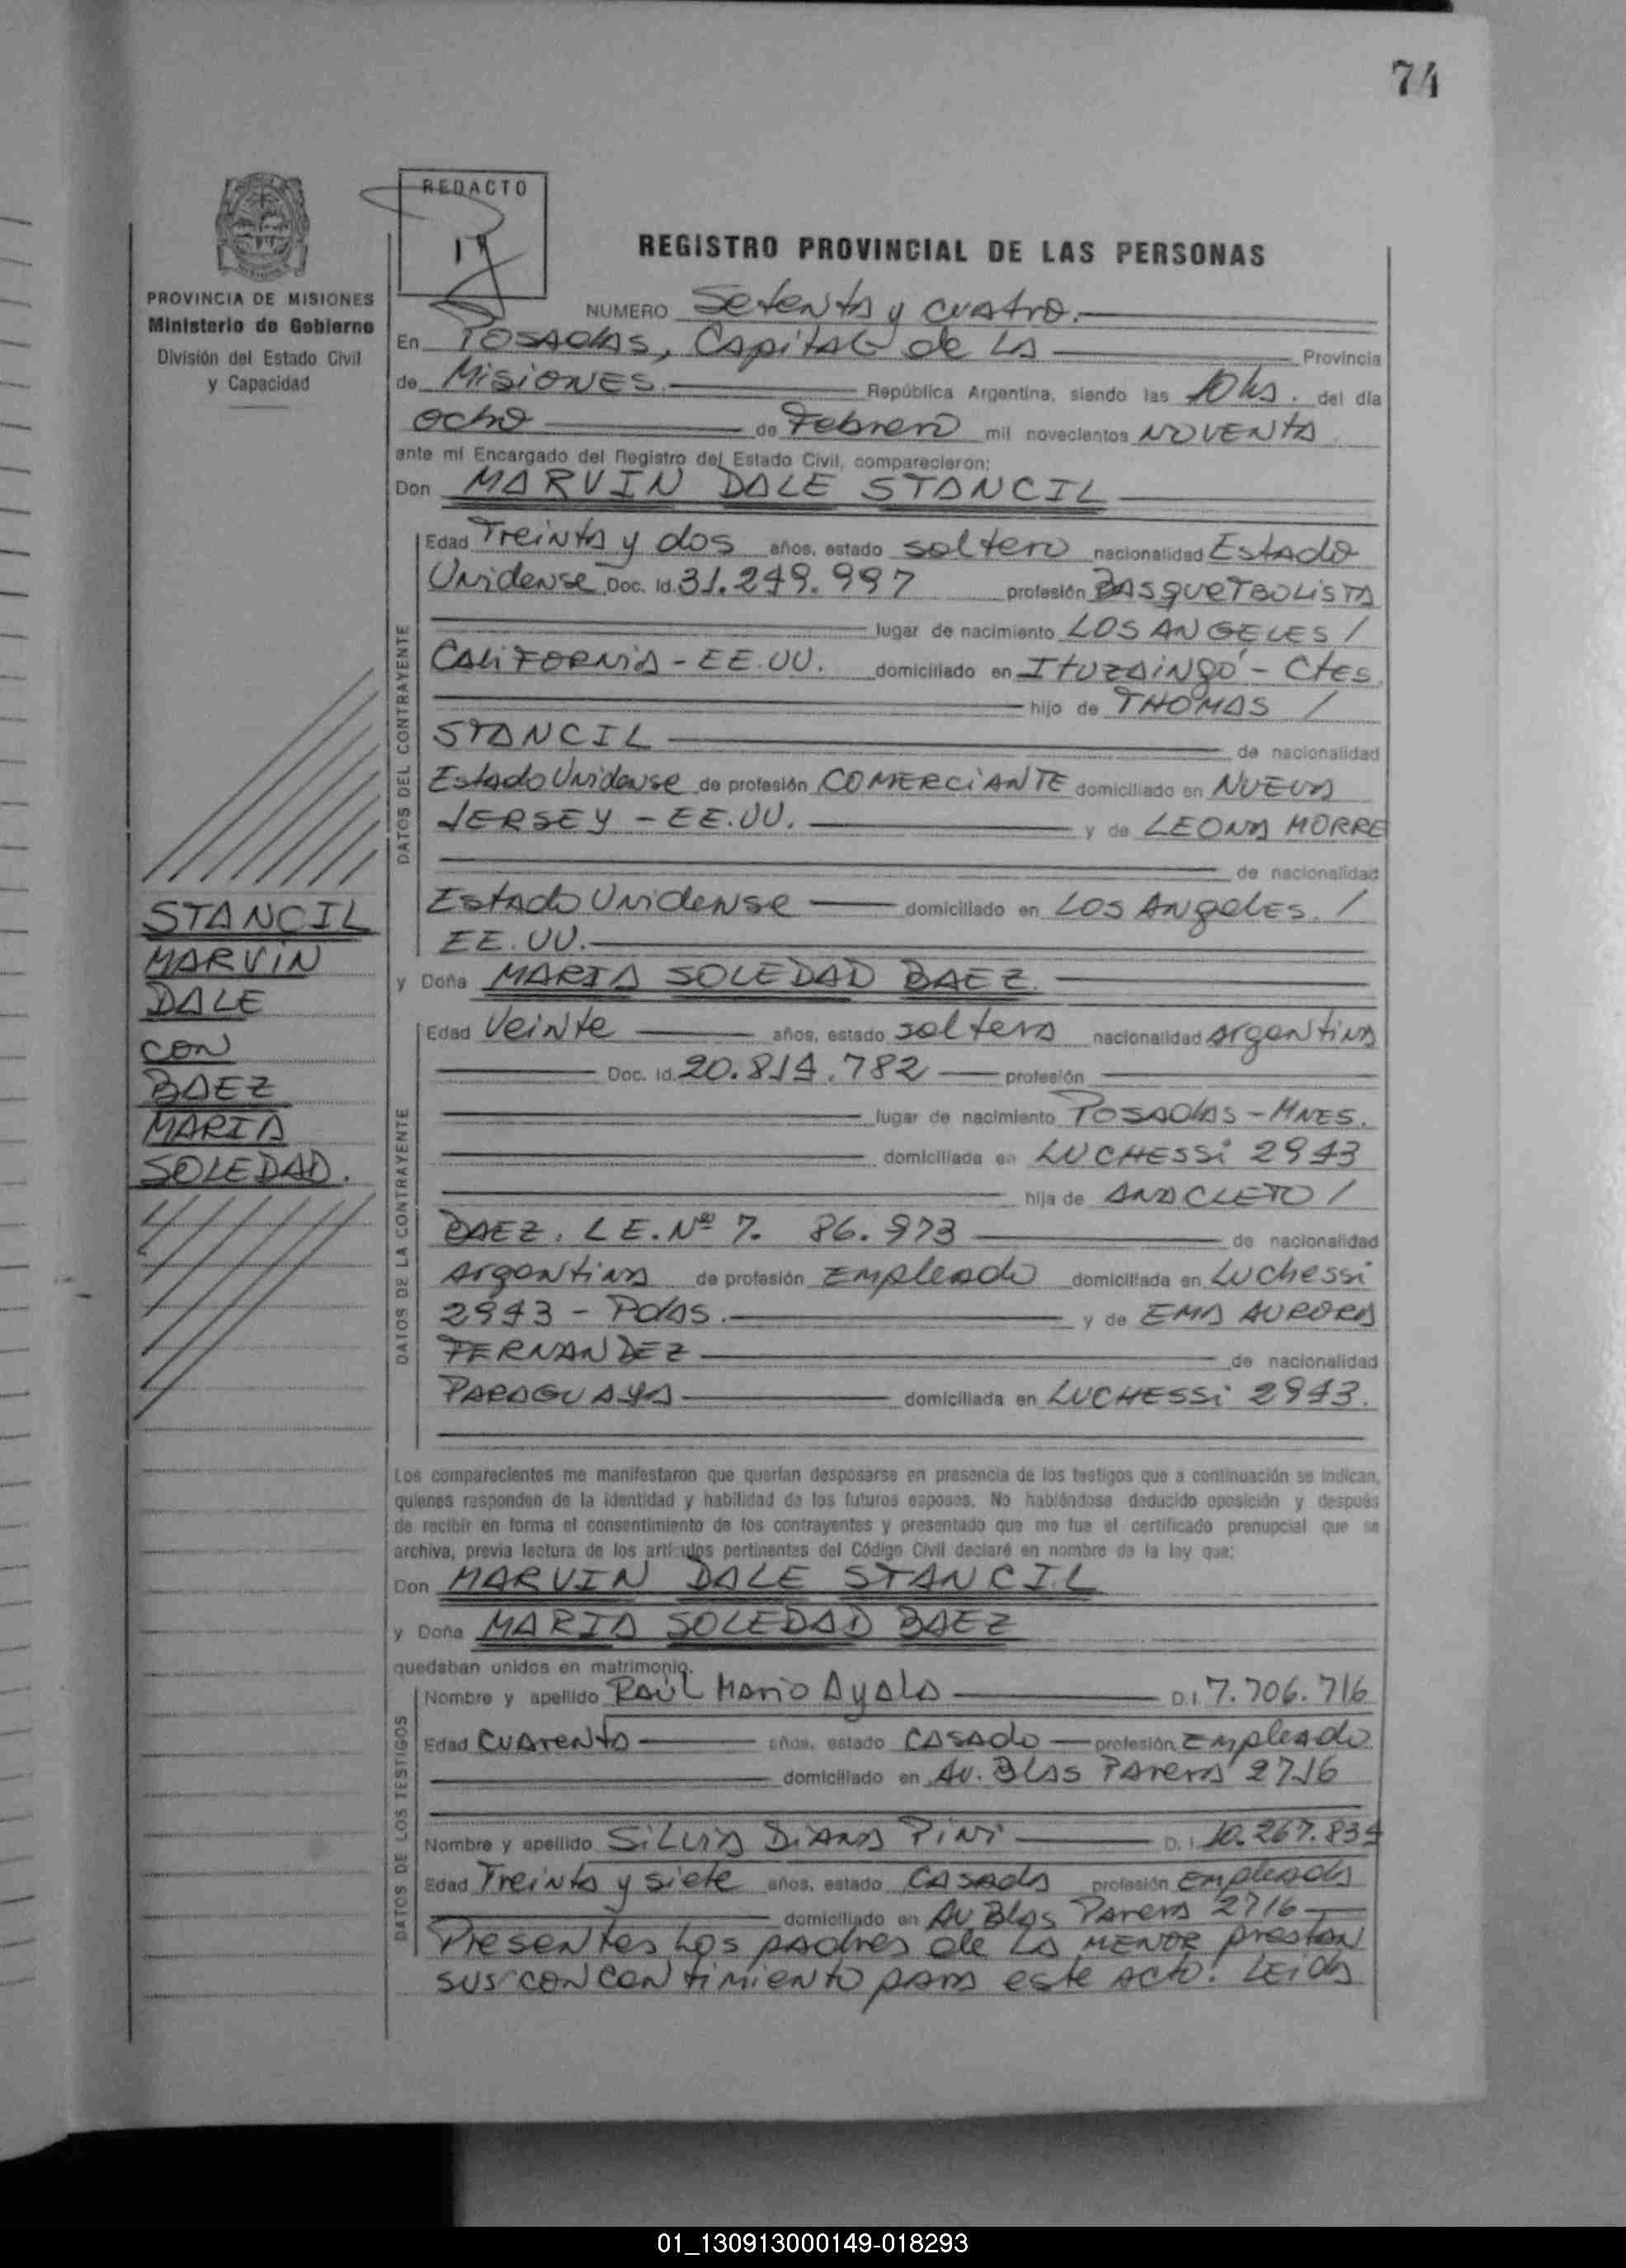 74
REDACTO
PROVINCIA DE MISIONES
Ministerio de Gobierno
División del Estado Civil
y Capacidad
REGISTRO PROVINCIAL DE LAS PERSONAS
NUMERO Setenta y cuatro.
En Posadas, Capital de la Provincia
de Misiones. República Argentina, siendo las 10hs. del día
ocho de Febrero mil novecientos NOVENTA
ante mí Encargado del Registro del Estado Civil, comparecieron:
Don MARVIN DALE STANCIL
DATOS DEL CONTRAYENTE
Edad Treinta y dos años, estado soltero nacionalidad Estado
Unidense Doc. Id. 31.249.997 profesión BASQUETBOLISTA
lugar de nacimiento LOS ANGELES /
CALIFORNIA - EE.UU. domiciliado en Ituzaingó - Ctes.
hijo de THOMAS /
STANCIL de nacionalidad
Estado Unidense de profesión COMERCIANTE domiciliado en NUEVA
JERSEY - EE.UU. y de LEONA MORRE
de nacionalidad
Estado Unidense domiciliado en Los Angeles. /
EE.UU.
y Doña MARIA SOLEDAD BAEZ.
STANCIL
MARVIN
DALE
CON
BAEZ
MARIA
SOLEDAD.
DATOS DE LA CONTRAYENTE
Edad Veinte años, estado soltera nacionalidad Argentina
Doc. Id. 20.814.782 profesión
lugar de nacimiento POSADAS - MNES.
domiciliada en LUCHESSI 2943
hija de ANACLETO /
BAEZ. L E. Nº 7. 86.973 de nacionalidad
Argentina de profesión Empleado domiciliada en Luchessi
2943 - Pdas. y de EMA AURORA
FERNANDEZ de nacionalidad
PARAGUAYA domiciliada en LUCHESSI 2943.
Los comparecientes me manifestaron que querían desposarse en presencia de los testigos que a continuación se indican,
quienes responden de la identidad y habilidad de los futuros esposos. No habiéndose deducido oposición y después
de recibir en forma el consentimiento de los contrayentes y presentado que me fue el certificado prenupcial que se
archiva, previa lectura de los artículos pertinentes del Código Civil declaré en nombre de la ley que:
Don MARVIN DALE STANCIL
y Doña MARIA SOLEDAD BAEZ
quedaban unidos en matrimonio.
DATOS DE LOS TESTIGOS
Nombre y apellido RAÚL Mario Ayala D.I. 7.706.716
Edad CUARENTA años, estado CASADO profesión Empleado
domiciliado en Av. Blas Parera 2716
Nombre y apellido Silvia Diana Pini D.I. 10.267.834
Edad Treinta y siete años, estado CASADA profesión Empleada
domiciliado en Av Blas Parera 2716
Presentes los padres de la MENOR prestan
sus concentimiento para este acto. Leida
01_130913000149-018293